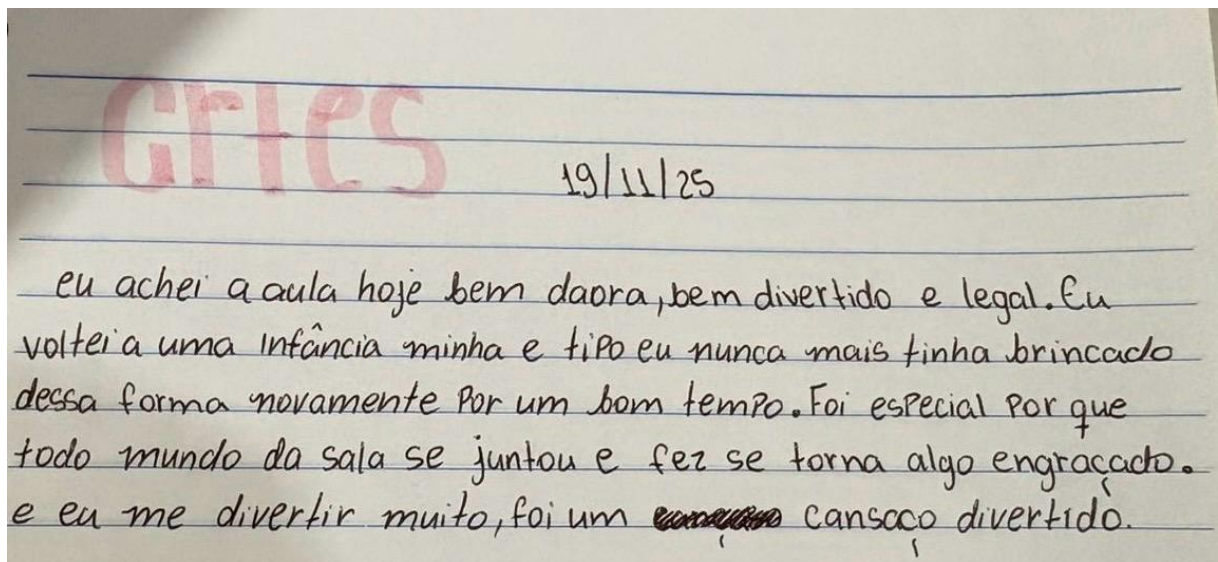 artes
19/11/25
eu achei a aula hoje bem daora, bem divertido e legal. Eu
voltei a uma infância minha e tipo eu nunca mais tinha brincado
dessa forma novamente por um bom tempo. Foi especial por que
todo mundo da sala se juntou e fez se torna algo engraçado.
e eu me divertir muito, foi um cansaço divertido.